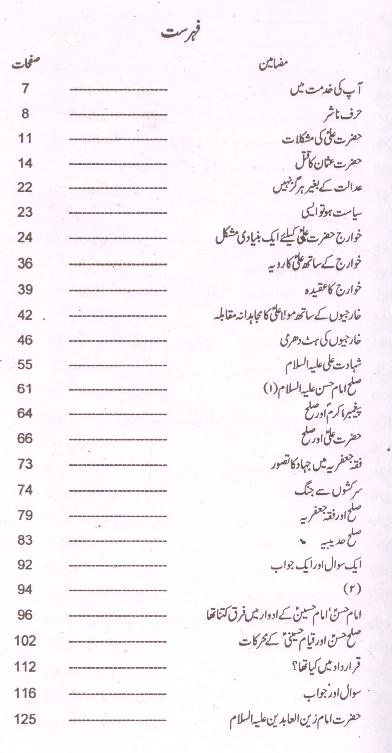 فہرست
مضامین صفحات
آپ کی خدمت میں ---------------- 7
حرف ناشر ---------------- 8
حضرت علیؑ کی مشکلات ---------------- 11
حضرت عثمان کا قتل ---------------- 14
عدالت کے بغیر ہرگز نہیں ---------------- 22
سیاست ہو تو ایسی ---------------- 23
خوارج حضرت علیؑ کیلئے ایک بنیادی مشکل ---------------- 24
خوارج کے ساتھ علیؑ کا رویہ ---------------- 36
خوارج کا عقیدہ ---------------- 39
خارجیوں کے ساتھ مولا علیؑ کا مجاہدانہ مقابلہ ---------------- 42
خارجیوں کی ہٹ دھرمی ---------------- 46
شہادت علی علیہ السلام ---------------- 55
صلح امام حسن علیہ السلام (۱) ---------------- 61
پیغمبر اکرمؐ اور صلح ---------------- 64
حضرت علیؑ اور صلح ---------------- 66
فقہ جعفریہ میں جہاد کا تصور ---------------- 73
سرکشوں سے جنگ ---------------- 74
صلح اور فقہ جعفریہ ---------------- 79
صلح حدیبیہ ---------------- 83
ایک سوال اور ایک جواب ---------------- 92
(۲) ---------------- 94
امام حسنؑ، امام حسینؑ کے ادوار میں فرق کتنا تھا ---------------- 96
صلح حسنؑ اور قیام حسینیؑ کے محرکات ---------------- 102
قرارداد میں کیا تھا؟ ---------------- 112
سوال اور جواب ---------------- 116
حضرت امام زین العابدین علیہ السلام ---------------- 125